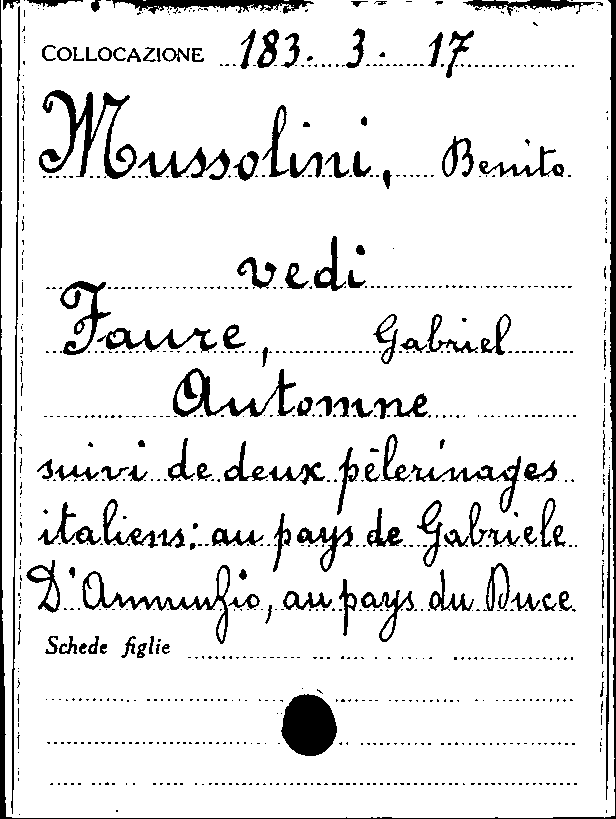 COLLOCAZIONE 183. 3. 17
Mussolini, Benito
vedi
Faure, Gabriel
Automne
suivi de deux pèlerinages
italiens: au pays de Gabriele
D'Annunzio, au pays du Duce
Schede figlie